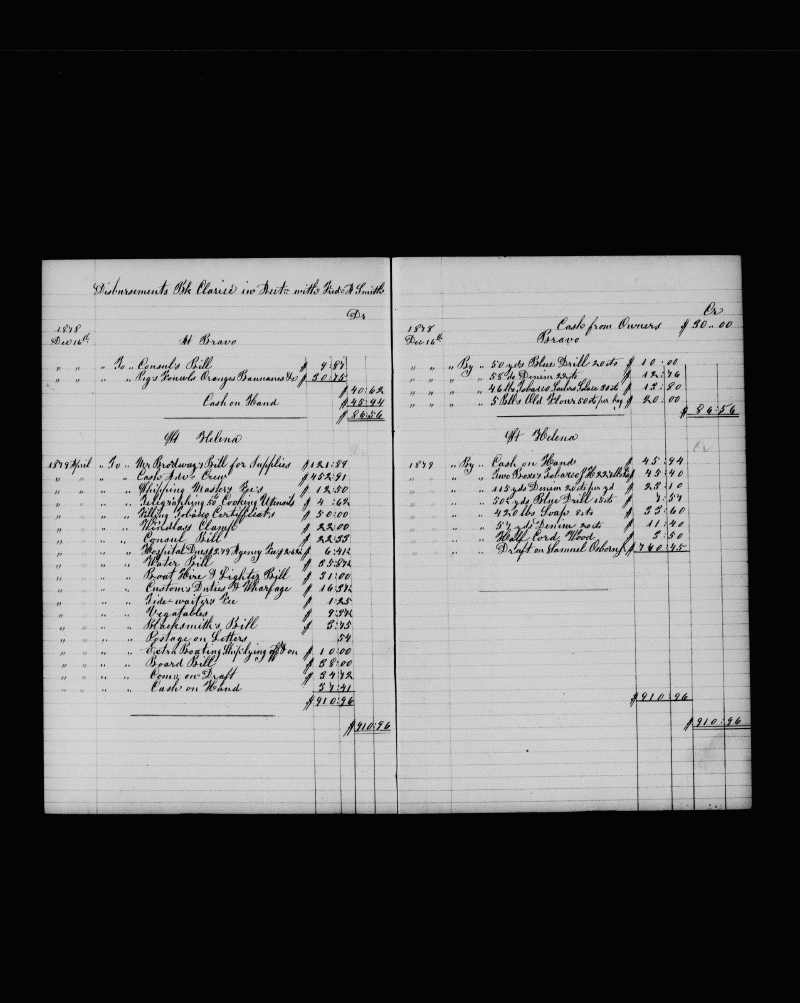 Disbursements Bk Clarice in Acct:: with Fred= H Smith
Dr
1878
Dec 16th At Bravo
" " " To " Consul's Bill $ 9:87
" " " " " Pigs Fowls Oranges Bannanas &c $ 30:75
$ 40:62
Cash on Hand $ 45:94
$ 86:56
At Helena
1879 April " To " Mr Brodway's Bill for Supplies $ 121:89
" " " " Cash Adv= Crew $ 452:91
" " " " Shipping Masters Fee's $ 12:50
" " " " Telegraphing 50 Cooking Utensils $ 4:62
" " " " Filling Tobacco Certifficat's $ 50:00
" " " " Windlass Clamps $ 22:00
" " " " Consul Bill $ 22:33
" " " " Hospital Dues Agency Fee $ 6:41½
" " " " Water Bill $ 35:37½
" " " " Boat Hire & Lighter Bill $ 31:00
" " " " Custom's Duties & Wharfage $ 16:37½
" " " " Tide-waiter's Fee $ 1:25
" " " " Vegatables $ 9:37½
" " " " Blacksmith's Bill $ 3:75
" " " " Postage on Letters 54
" " " " Extra Boating Ship lying off & on $ 10:00
" " " " Board Bill $ 38:00
" " " " Com= on Draft $ 34:72
" " " " Cash on Hand $ 37:41
$ 910:96
$ 910:96
Cr
1878 Cash from Owners $ 30..00
Dec 16th Bravo
" " " By " 50 yds Blue Drill 20cts $ 10:00
" " " " " 58 yds Denim 22cts $ 12:76
" " " " " 46 lbs Tobacco 30cts $ 13:80
" " " " " 5 Bbls Old Flour 50cts per $ 20:00
$ 86:56
At Helena
Cr
1879 " By " Cash on Hand $ 45:94
" " Two Boxes Tobacco $ 45:40
" " 115 yds Denim 20cts per yd $ 23:10
" " 50½ yds Blue Drill 15cts $ 7:57
" " 420 lbs Soap 8cts $ 33:60
" " 57 yds Denim 20cts $ 11:40
" " Half Cord Wood $ 3:50
" " Draft on Samuel Osborn Jr $ 740:45
$ 910:96
$ 910:96